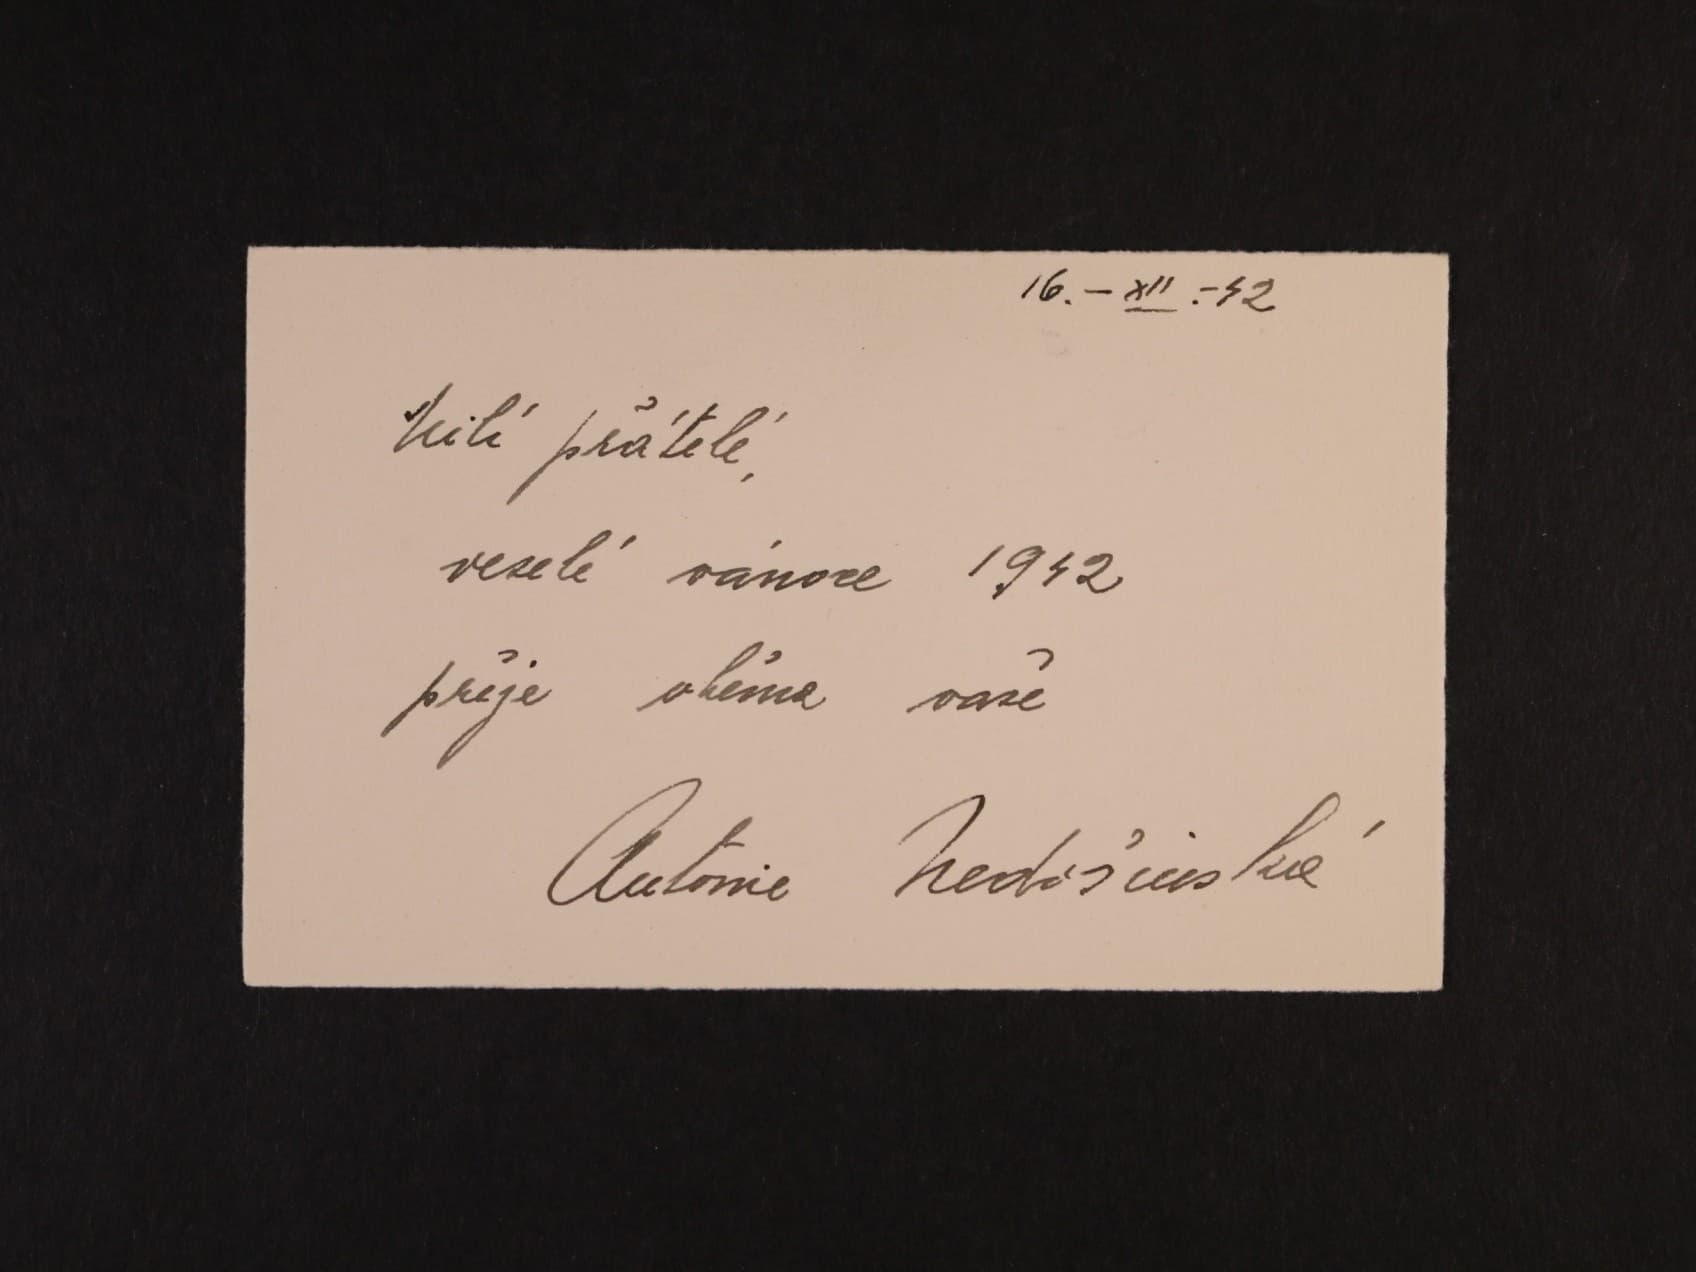 16. – XII. – 42
Milí přátelé,
veselé vánoce 1942
přeje oběma vaše
Antonie Nedošinská